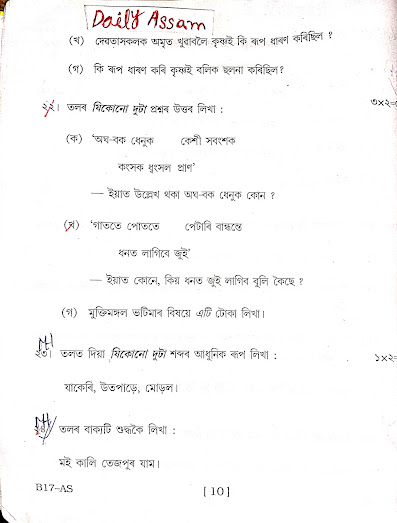 Daily Assam
(খ) দেৱতাসকলক অমৃত খুৱাবলৈ কৃষ্ণই কি ৰূপ ধাৰণ কৰিছিল ?
(গ) কি ৰূপ ধাৰণ কৰি কৃষ্ণই বলিক ছলনা কৰিছিল?
২২। তলৰ যিকোনো দুটা প্ৰশ্নৰ উত্তৰ লিখা : ৩×২=
(ক) ‘অঘ-বক ধেনুক কেশী সবংশক
কংসক ধ্বংসল প্ৰাণ’
— ইয়াত উল্লেখ থকা অঘ-বক ধেনুক কোন ?
(খ) ‘গাততে পোততে পেটাৰি বান্ধন্তে
ধনত লাগিবে জুই’
— ইয়াত কোনে, কিয় ধনত জুই লাগিব বুলি কৈছে ?
(গ) মুক্তিমঙ্গল ভটিমাৰ বিষয়ে এটি টোকা লিখা।
২৩। তলত দিয়া যিকোনো দুটা শব্দৰ আধুনিক ৰূপ লিখা : ১×২=
যাকেৰি, উতপাড়ে, মোড়ল।
২৪। তলৰ বাক্যটি শুদ্ধকৈ লিখা :
মই কালি তেজপুৰ যাম।
B17-AS
[ 10 ]